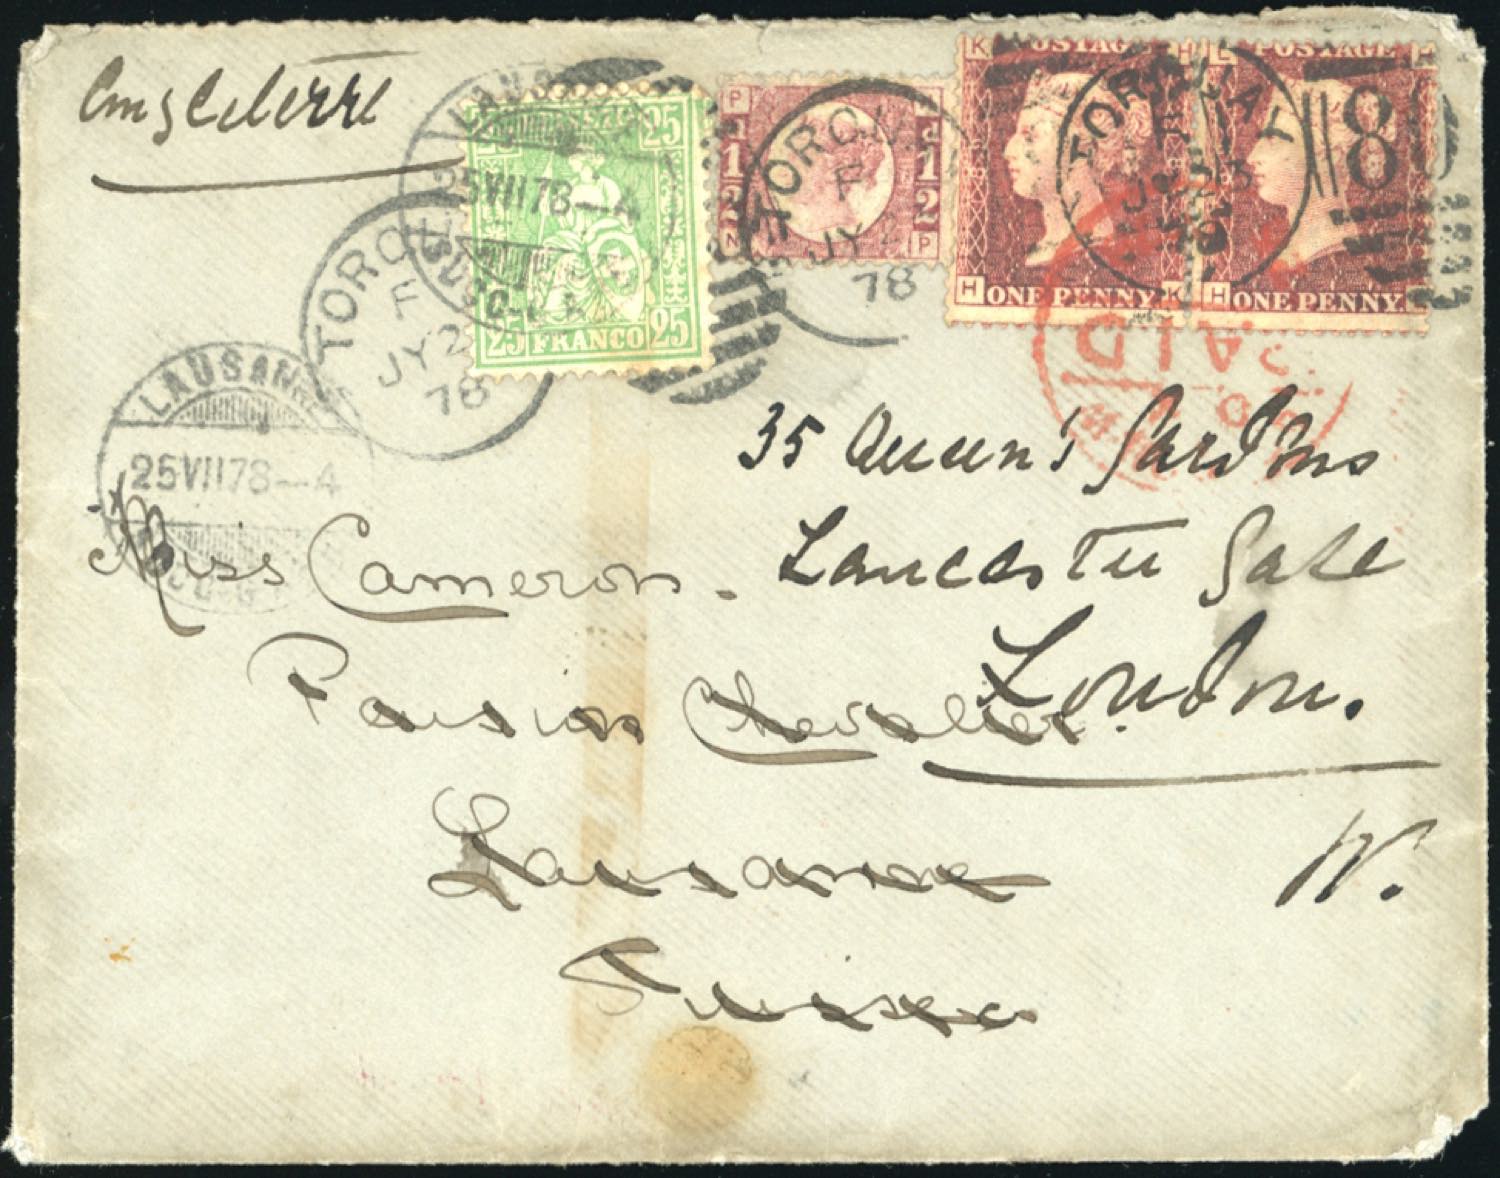 Angleterre
25 25
25 FRANCO 25
LAUSANNE
25 VII 78 – 4
P
1/2 1/2
N P
K POSTAGE H
H ONE PENNY. K
L POSTAGE H
H ONE PENNY.
TORQUAY
F
JY 23
78
8
TORQ
F
JY 2
78
TORQ
F
JY 2
78
PAID
LAUSANNE
25 VII 78 – 4
35 Queen's Gardens
Lancaster Gate
London.
W.
Miss Cameron.
Pension Chevalier.
Lausanne
Suisse